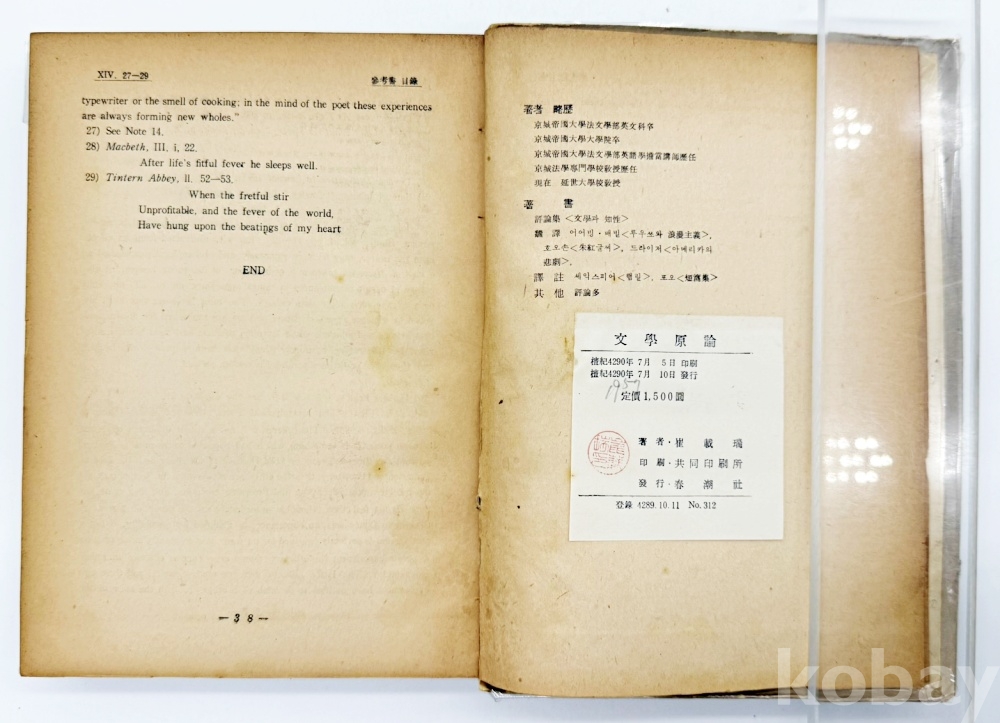 XIV. 27—29
參考書 目錄
typewriter or the smell of cooking; in the mind of the poet these experiences
are always forming new wholes."
27) See Note 14.
28) Macbeth, III, i, 22.
After life's fitful fever he sleeps well.
29) Tintern Abbey, ll. 52—53.
When the fretful stir
Unprofitable, and the fever of the world,
Have hung upon the beatings of my heart
END
— 3 8 —
著者 略歷
京城帝國大學法文學部英文科卒
京城帝國大學大學院卒
京城帝國大學法文學部英語學擔當講師歷任
京城法學專門學校敎授歷任
現在 延世大學校敎授
著 書
評論集 <文學과 知性>
飜譯 어어빙·배빝<루우쏘와 浪漫主義>,
호오손<朱紅글씨>, 드라이저<아메리카의
悲劇>,
譯註 쉐익스피어<햄릴>, 포오<短篇集>
其他 評論多
文學原論
檀紀4290年 7月 5日 印刷
檀紀4290年 7月 10日 發行
1957
定價 1,500圜
著者·崔載瑞
印刷·共同印刷所
發行·春潮社
登錄 4289.10.11 No.312
kobay